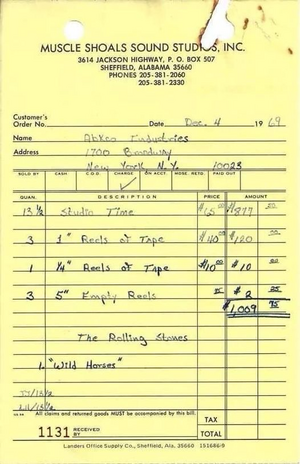 MUSCLE SHOALS SOUND STUDIOS, INC.
3614 JACKSON HIGHWAY, P. O. BOX 507
SHEFFIELD, ALABAMA 35660
PHONES 205-381-2060
205-381-2330
Customer's
Order No. Date Dec. 4 1969
Name Abkco Industries
Address 1700 Broadway
New York N.Y. 10023
SOLD BY CASH C.O.D. CHARGE ON ACCT. MDSE. RETD. PAID OUT
QUAN. DESCRIPTION PRICE AMOUNT
13 1/2 Studio Time $65 00 $877 50
3 1" Reels of Tape $40 00 $120
1 1/4" Reels of Tape $10 00 $10 00
3 5" Empty Reels $2 25
$1,009 75
The Rolling Stones
1. "Wild Horses"
All claims and returned goods MUST be accompanied by this bill.
1131 RECEIVED BY
TAX
TOTAL
Landers Office Supply Co., Sheffield, Ala. 35660 151686-9